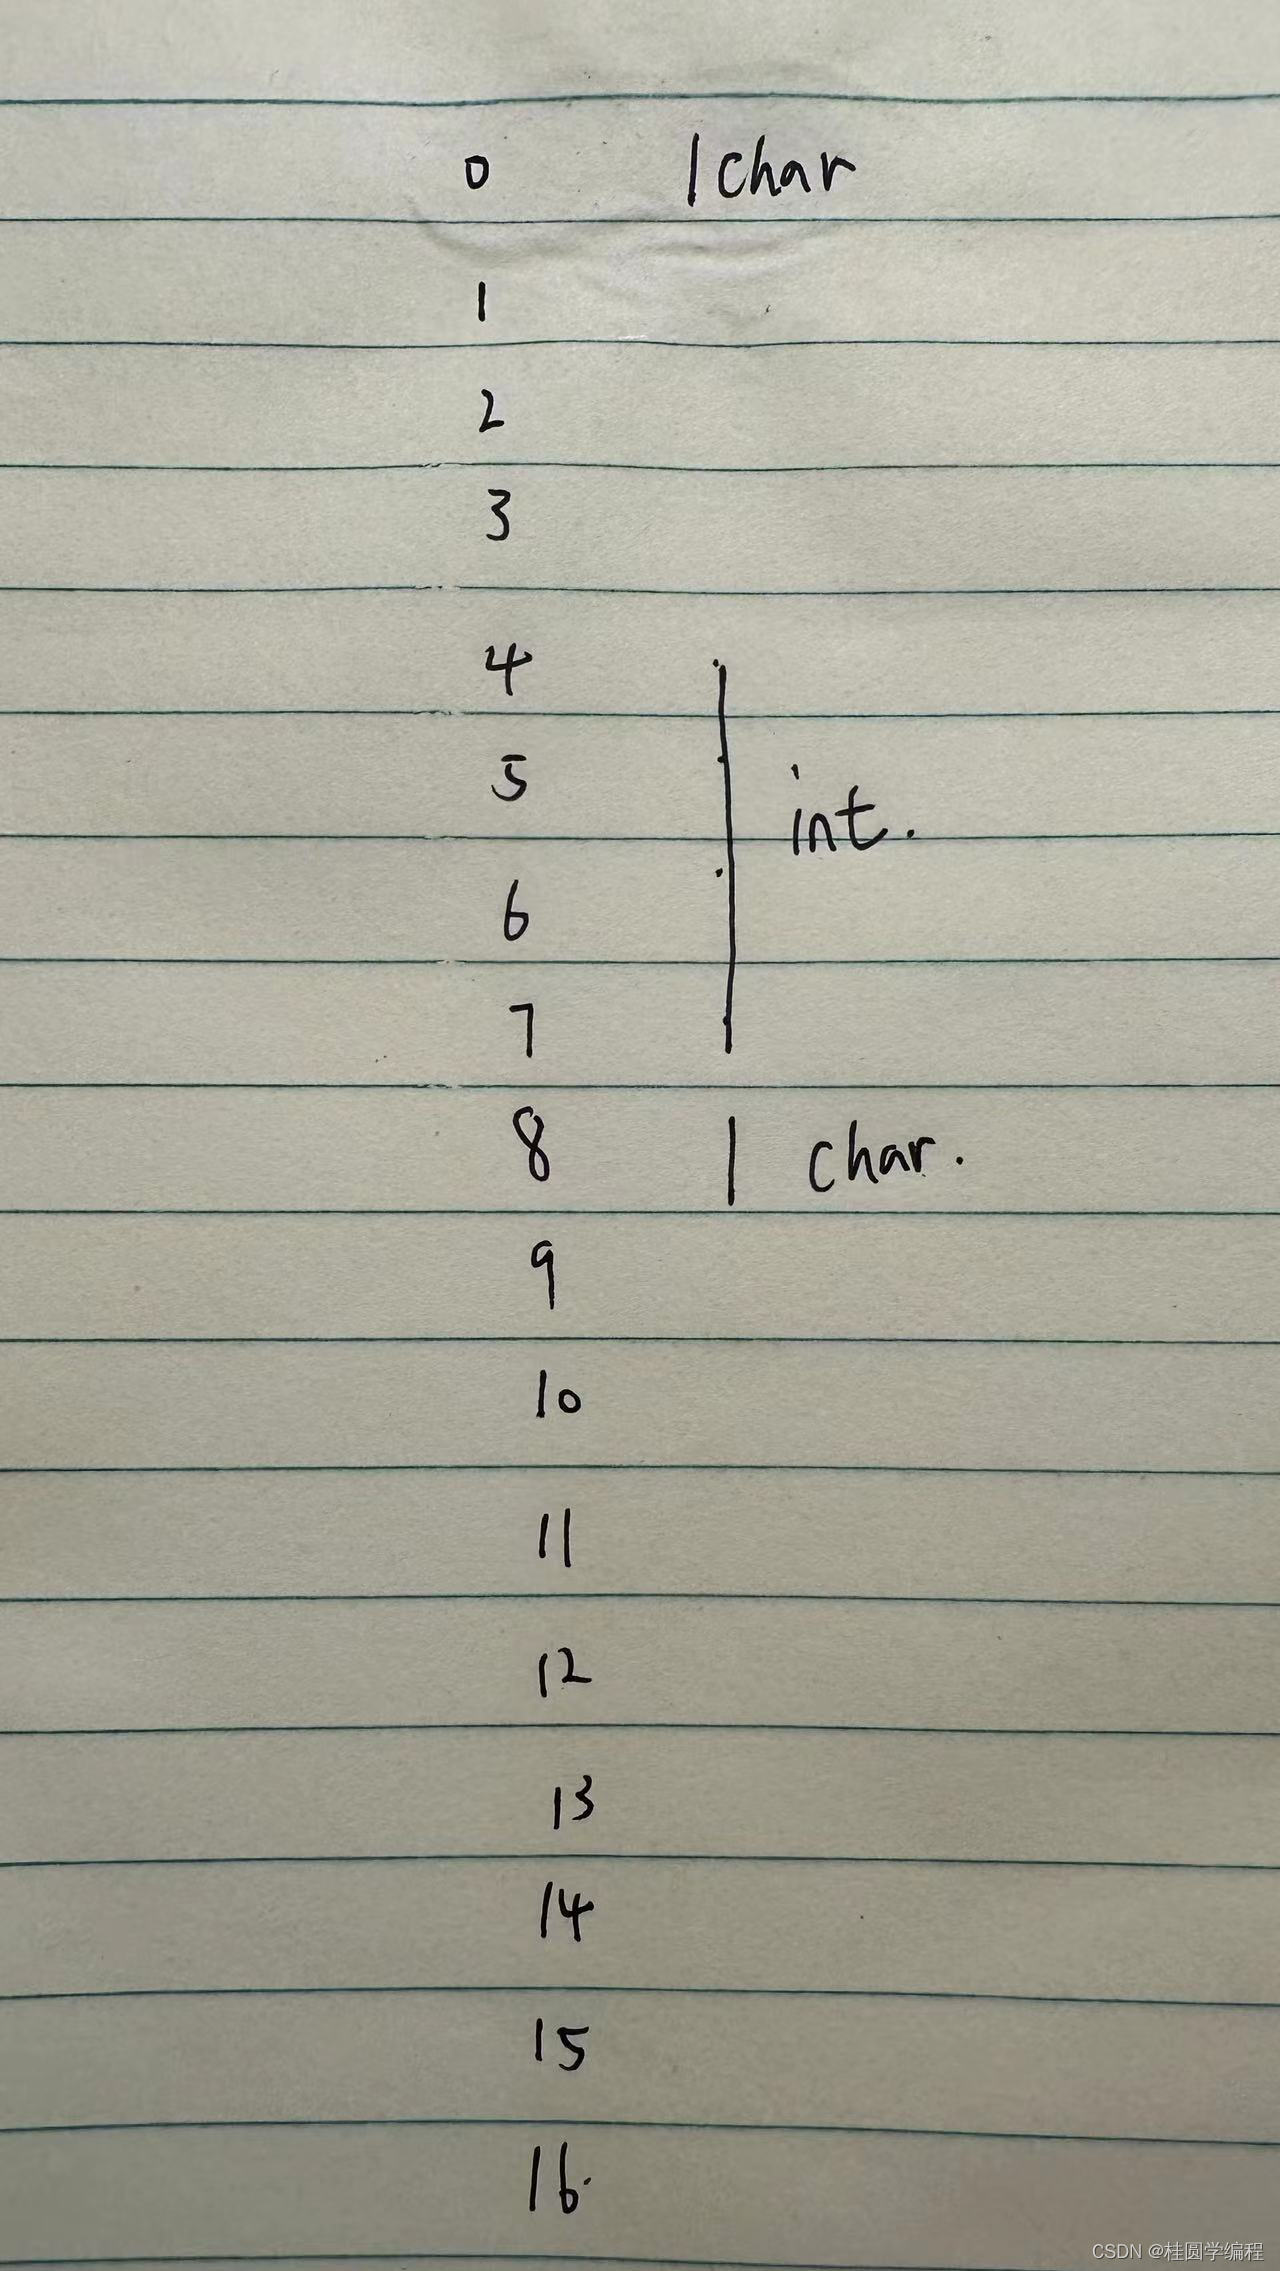 0 | char
1
2
3
4
5
int.
6
7
8 | char.
9
10
11
12
13
14
15
16
CSDN @桂圆学编程